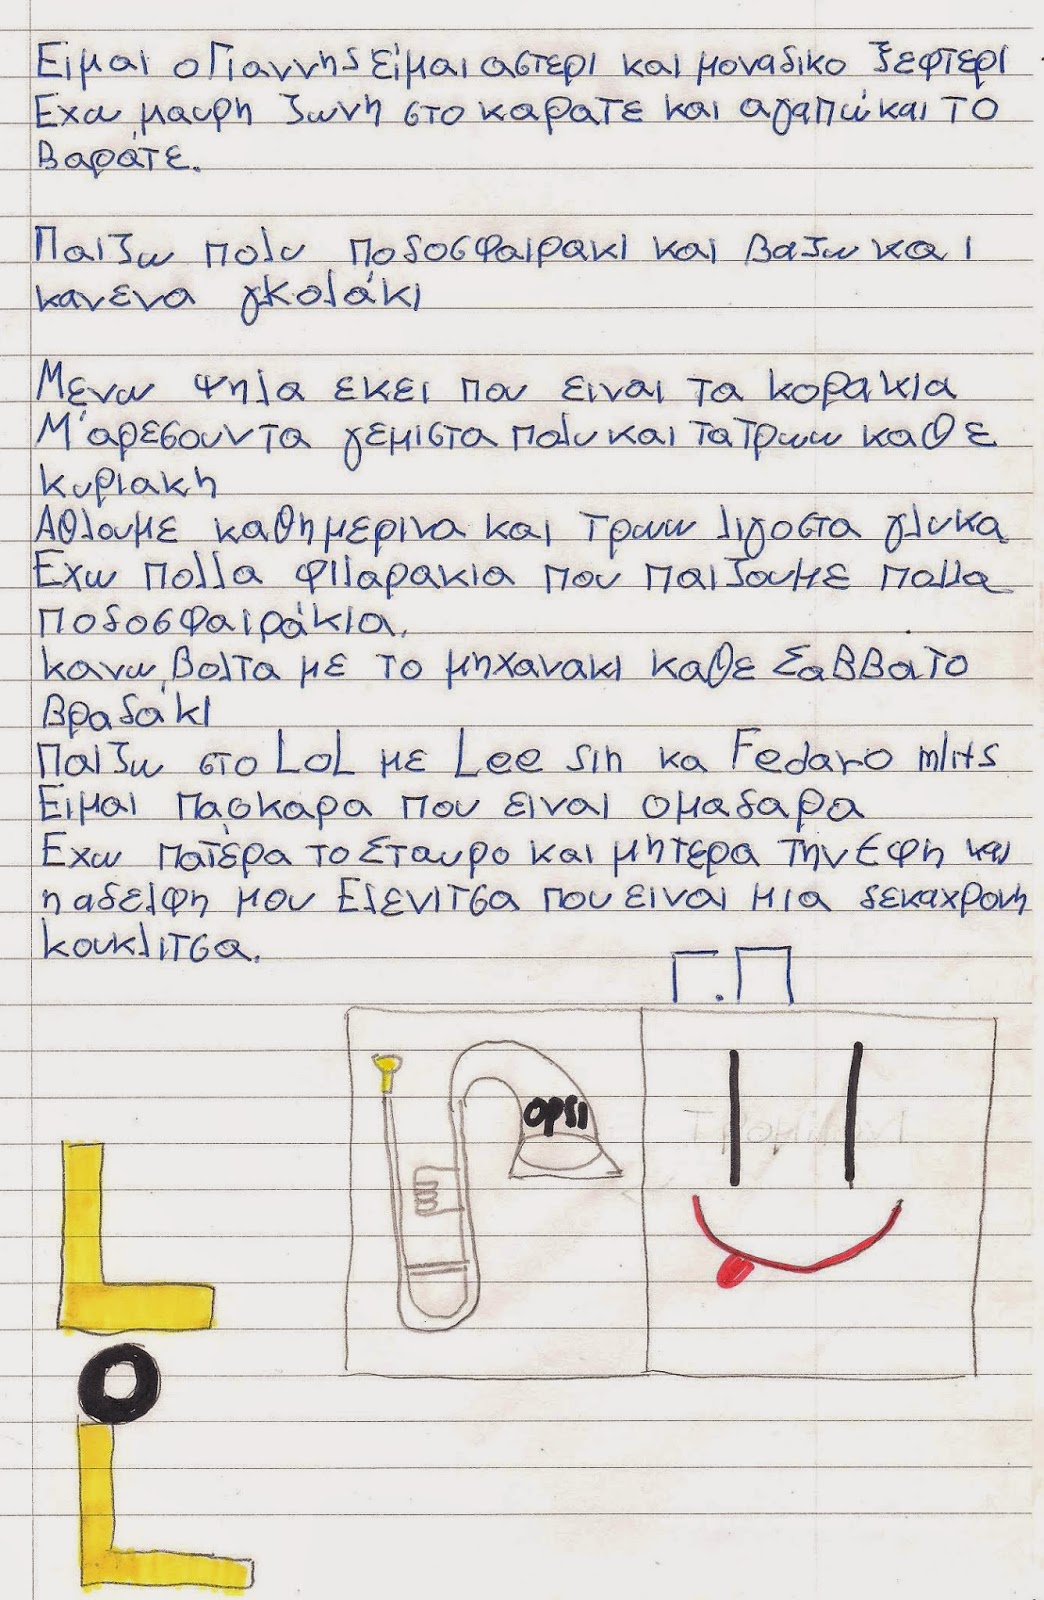 Ειμαι ο Γιαννης είμαι αστερι και μοναδικο ξεφτερι
Εχω μαυρη ζωνη στο καρατε και αγαπώ και το
βαράτε.
Παιζω πολυ ποδοσφαιρακι και βαζω και
κανενα γκολάκι
Μενω ψηλα εκει που ειναι τα κορακια
Μ'αρεσουν τα γεμιστα πολυ και τα τρωω καθε
κυριακη
Αθλουμε καθημερινα και τρωω λιγοστα γλυκα
Εχω πολλα φιλαρακια που παιζουμε πολλα
ποδοσφαιράκια.
κανω βολτα με το μηχανακι καθε Σαββατο
βραδάκι
Παιζω στο LoL με Lee sin κα Fedaro
Ειμαι παοκαρα που ειναι ομαδαρα
Εχω πατέρα το Σταυρο και μητερα την Εφη και
η αδελφη μου Ελενιτσα που ειναι μια δεκαχρονη
κουκλιτσα.
Γ.Π
opsi
L
O
L